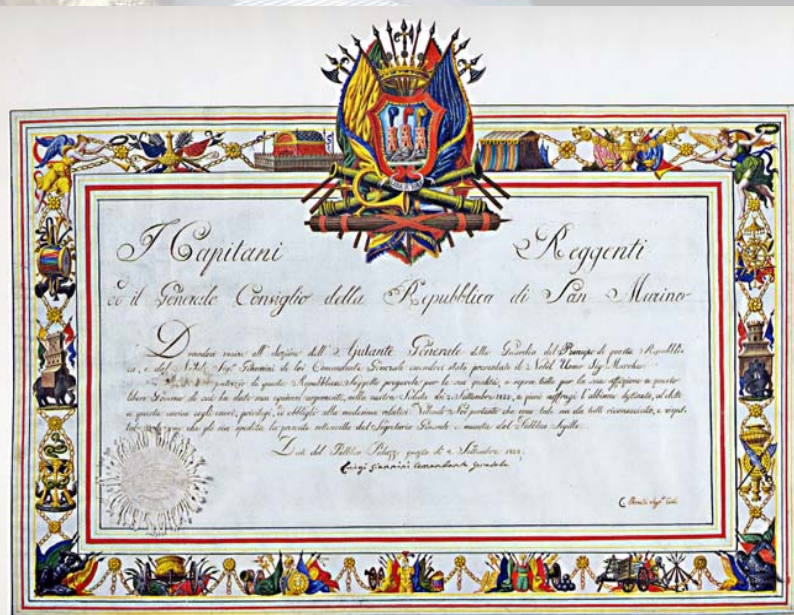 LIBERTAS
I Capitani Reggenti
ed il Generale Consiglio della Repubblica di San Marino
Dovendosi venire all' elezione dell' Ajutante Generale della Guardia del Principe di questa Repubblica
, e dal Nobil Sig. Giannini de lei Comandante Generale essendoci stato presentato il Nobil Uomo Sig. Marchese
patrizio di questa Repubblica Soggetto pregevole per le sue qualità, e sopra tutto per la sua affezione a questo
libero Governo di cui ha dato non equivoci argomenti, nella nostra Seduta dei 2 Settembre a pieni suffragj l'abbiamo destinato, ed eletto
a questa carica cogli onori, privilegj, ed obblighi alla medesima relativi. Volendo Noi pertanto che come tale sia da tutti riconosciuto, e
che gli sia spedita la presente sottoscritta dal Segretario Generale e munita del Pubblico Sigillo.
Dato dal Pubblico Palazzo questo dì 2 Settembre
Luigi Giannini Comandante Generale